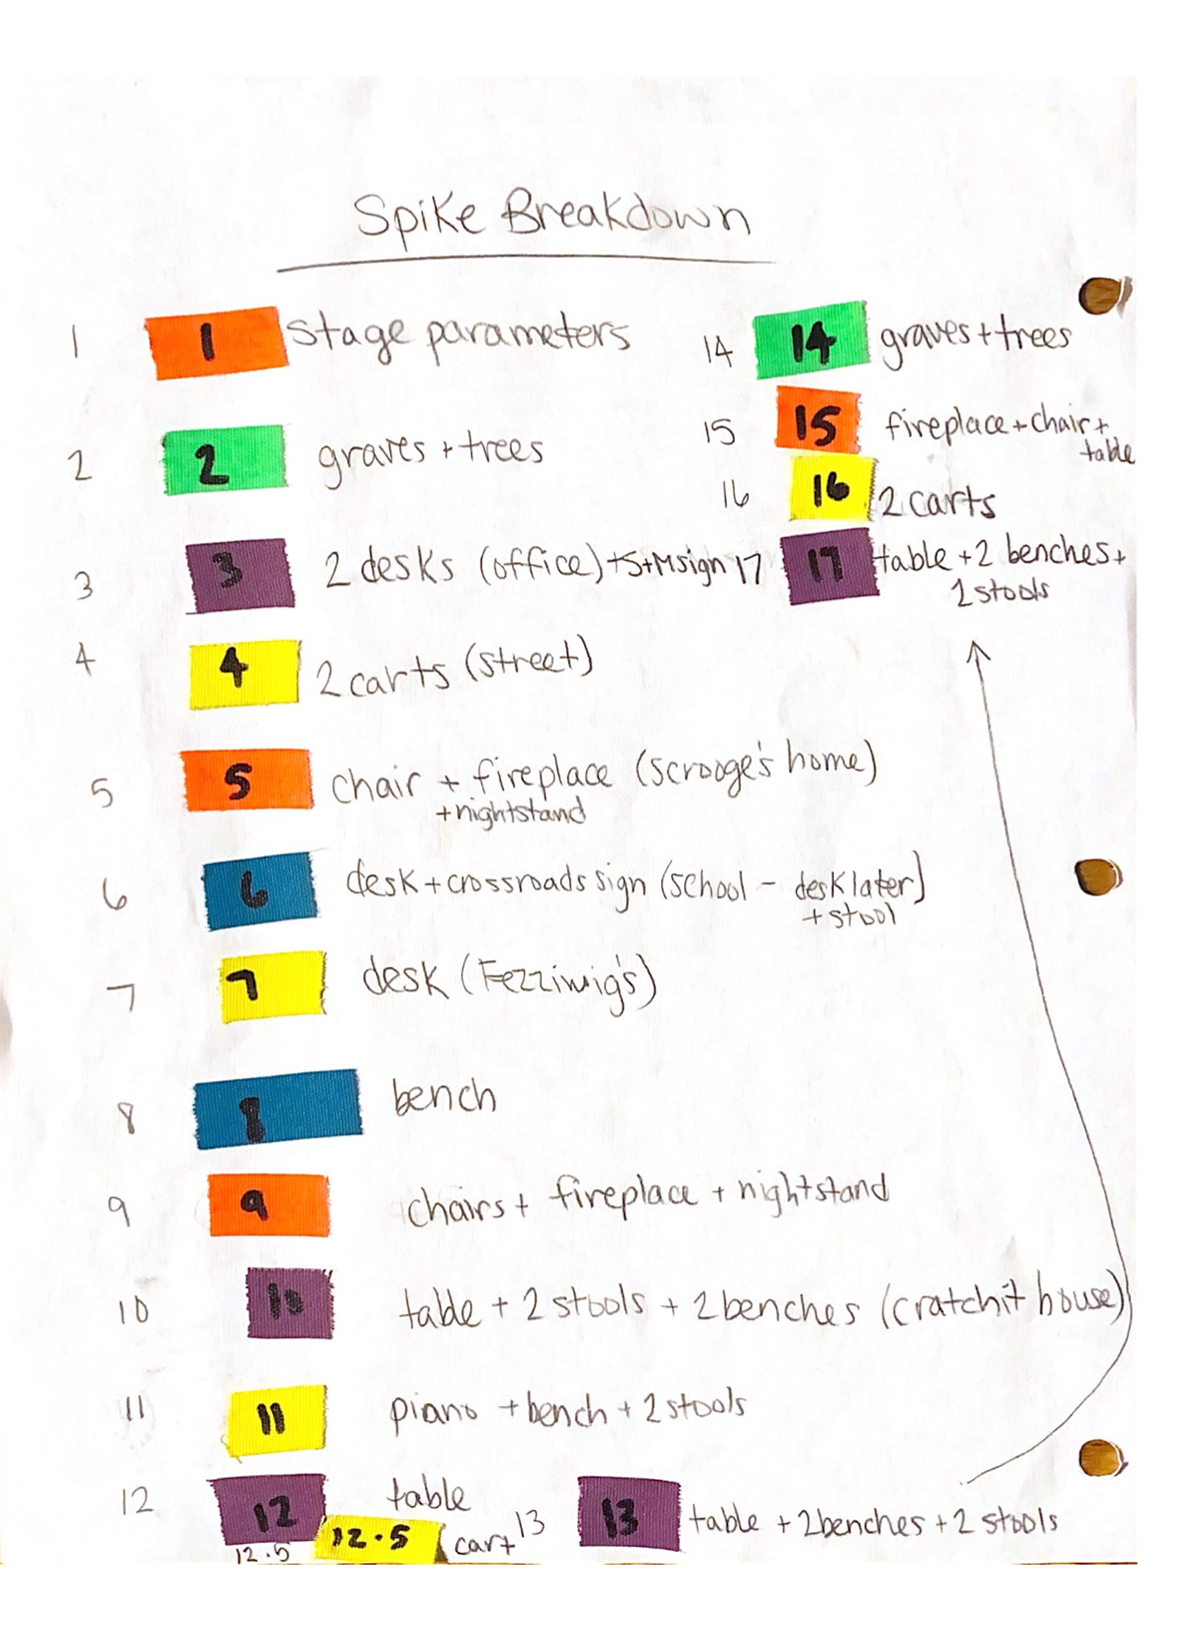 Spike Breakdown
1 1 stage parameters
2 2 graves + trees
3 3 2 desks (office) + S+M sign
4 4 2 carts (street)
5 5 chair + fireplace (scrooge's home)
+ nightstand
6 6 desk + crossroads sign (school - desk later)
+ stool
7 7 desk (Fezziwig's)
8 8 bench
9 9 chairs + fireplace + nightstand
10 10 table + 2 stools + 2 benches (cratchit house)
11 11 piano + bench + 2 stools
12 12 table
12.5 12.5 cart
13 13 table + 2 benches + 2 stools
14 14 graves + trees
15 15 fireplace + chair +
table
16 16 2 carts
17 17 table + 2 benches +
2 stools